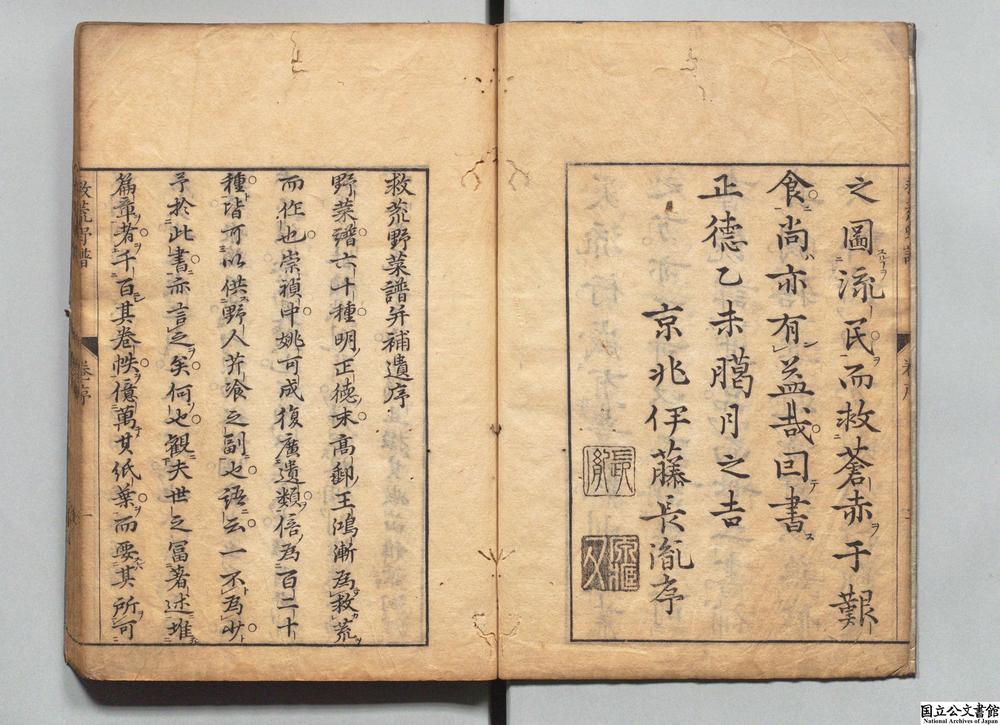 之圖流民而救蒼赤于艱
食尚亦有益哉因書
正德乙未臈月之吉
京兆伊藤長胤序
長胤
救荒野菜譜并補遺序
野菜譜六十種明正德末高郵王鴻漸為救荒
而作也崇禎中姚可成復廣遺類倍為百二十
種皆可以供野人芹飡之副也語云一不為少
予於此書亦言之矣何也觀夫世之冨著述堆
篇章者千百其卷帙億萬其紙葉而要其所可
救荒野譜
卷序
一
国立公文書館
National Archives of Japan